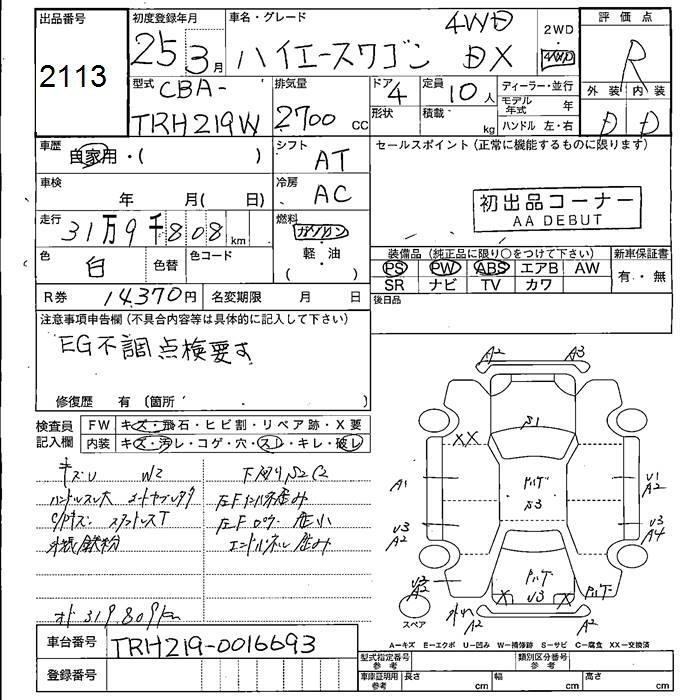 出品番号 初度登録年月 車名・グレード 4WD 2WD 評価点
2113 25 3月 ハイエースワゴン DX 4WD R
型式 排気量 ドア 定員 ディーラー・並行 外装 内装
CBA- 4 10人 モデル年式 年 D D
TRH219W 2700cc 形状 積載 kg ハンドル 左・右
車歴 自家用・( ) シフト AT セールスポイント(正常に機能するものに限ります)
車検 年 月( 日) 冷房 AC 初出品コーナー
AA DEBUT
走行 31万9千808km 燃料 ガソリン
軽・油
( )
色 白 色替 色コード
装備品(純正品に限り○をつけて下さい) 新車保証書
PS PW ABS エアB AW 有・無
SR ナビ TV カワ
R券 14,370円 名変期限 月 日 後日品
注意事項申告欄(不具合内容等は具体的に記入して下さい)
EG不調点検要す
修復歴 有(箇所
検査員記入欄 FW キズ・飛石・ヒビ割・リペア跡・X要
内装 キズ・汚レ・コゲ・穴・スレ・キレ・破レ
キズU W2 下回りS2C2
ハンドルスレ大
外板鉄粉
オド319,809km
A2 A3
S1
XX
A1 ルーフ U1
A2
S3
U3
A2 U3
A4
U3
A2 X X
U3
A2 A2
スペア
A-キズ E-エクボ U-凹み W-補修跡 S-サビ C-腐食 XX-交換済
車台番号 TRH219-0016693
登録番号
型式指定番号参考 類別区分番号参考
車庫証明用参考 長さ cm 幅 cm 高さ cm